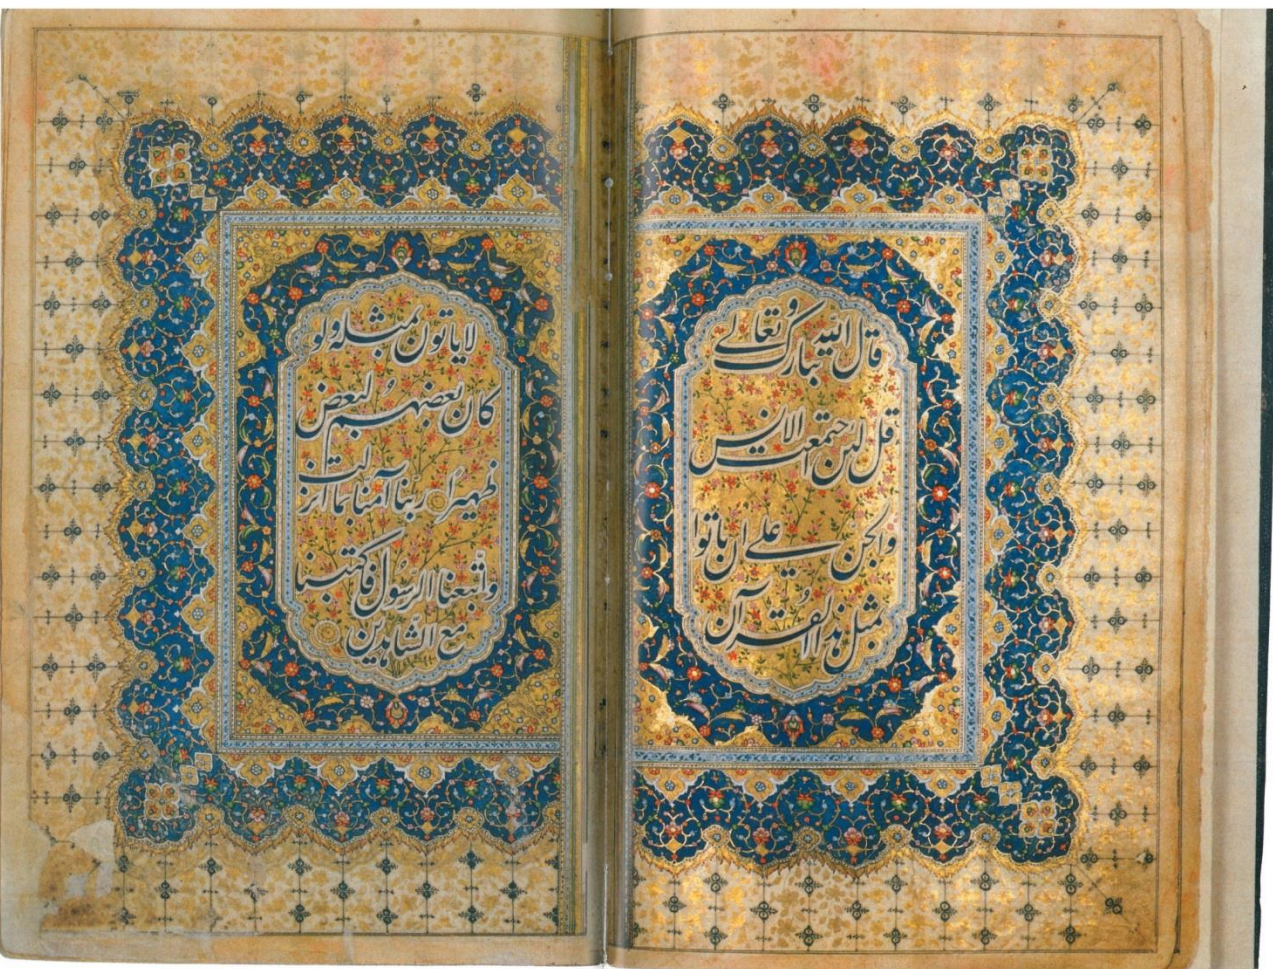 قال الله تبارک و تعالے
قل لئن اجتمعت الانس
والجن علے ان یاتوا
بمثل هذا القرآن
لا یاتون بمثله ولو
کان بعضهم لبعض
ظهیرا ربنا آمنا بما انزلت
واتبعنا الرسول فاکتبنا
مع الشاهدین